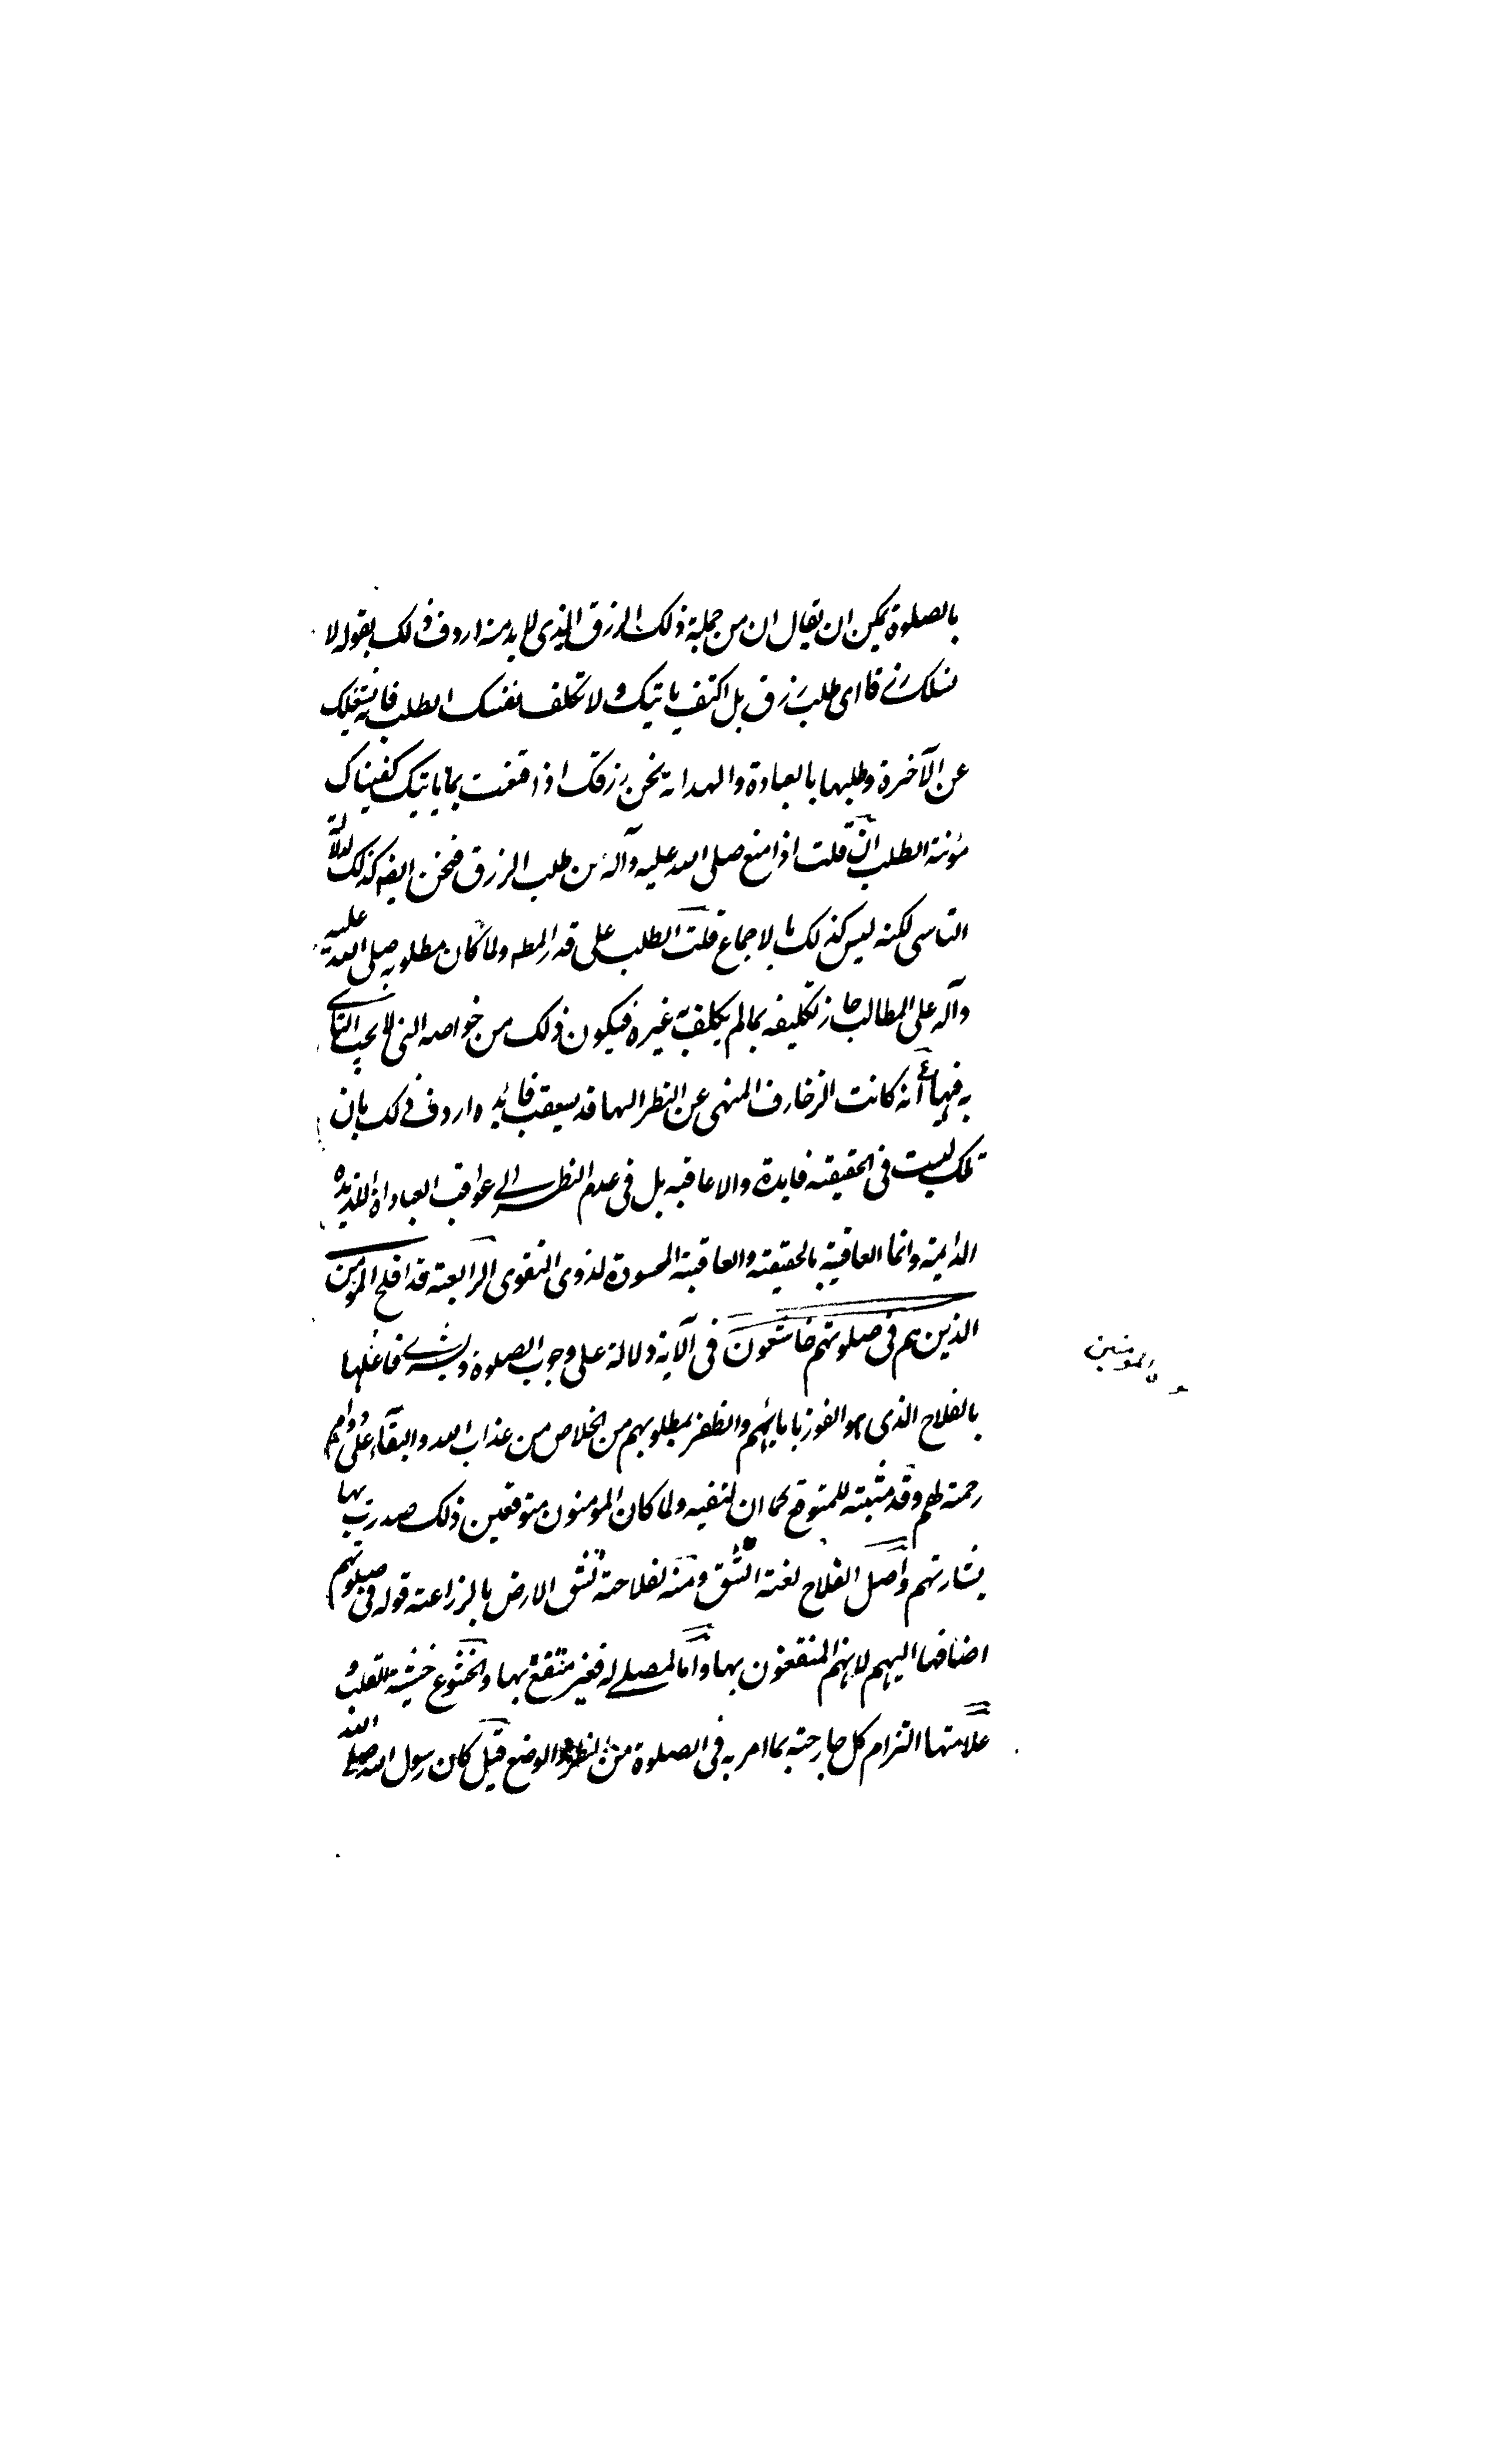 بالصلوة يمكن ان يقال ان من جملة ذلك الرزق الذى لابد منه اردف ذلك بقوله لا
نسئلك رزقا اى طلب رزق بل اكتف بما ياتيك ولا تكلف نفسك الطلب فانه يشغلك
عن الآخرة وطلبها بالعبادة والهداية نحن نرزقك اذا قنعت بما ياتيك كفيناك
مؤنة الطلب ان قلت اذا منع صلى الله عليه وآله من طلب الرزق فنحن ايضا كذلك لدلالة
التاسى لكنه ليس كذلك بالاجماع قلت الطلب على قدر المط ولما كان مطلوبه صلى الله عليه
وآله على المطالب جاز تكليفه بما لم يكلف به غيره فيكون ذلك من خواصه التى لا يجب التاسى
به فيها انه كانت الزخارف المنهى عن النظر اليها قد يعقب فائدة اردف ذلك بان
تلك ليست فى الحقيقة فايدة والا عاقبة بل فى عدم النظر الى عواقب العبادات اللذيذة
الدائمة وانما العاقبة بالحقيقة والعاقبة المحمودة لذوى التقوى الرابعة قد افلح المؤمنون
الذين هم فى صلوتهم خاشعون فى الآية دلالة على وجوب الصلوة وبشرى فاعلها
بالفلاح الذى هو الفوز بامانيهم والظفر بمطلوبهم من الخلاص من عذاب الله والبقاء على دوام
رحمته لهم وقد مثبتة للمتوقع كما ان لتنفيه ولما كان المؤمنون متوقعين ذلك صدرت بها
بشارتهم واصل الفلاح لغة الشق ومنه الفلاحة لشق الارض بالزراعة قوله فى صلوتهم
اضافها اليهم لانهم المنتفعون بها واما المصلى له فغير منتفع بها والخشوع خشية القلب و
علامتها التزام كل جارحة بما امر به فى الصلوة من النظر والوضع قيل كان رسول الله صلى الله
سورة المؤمنين